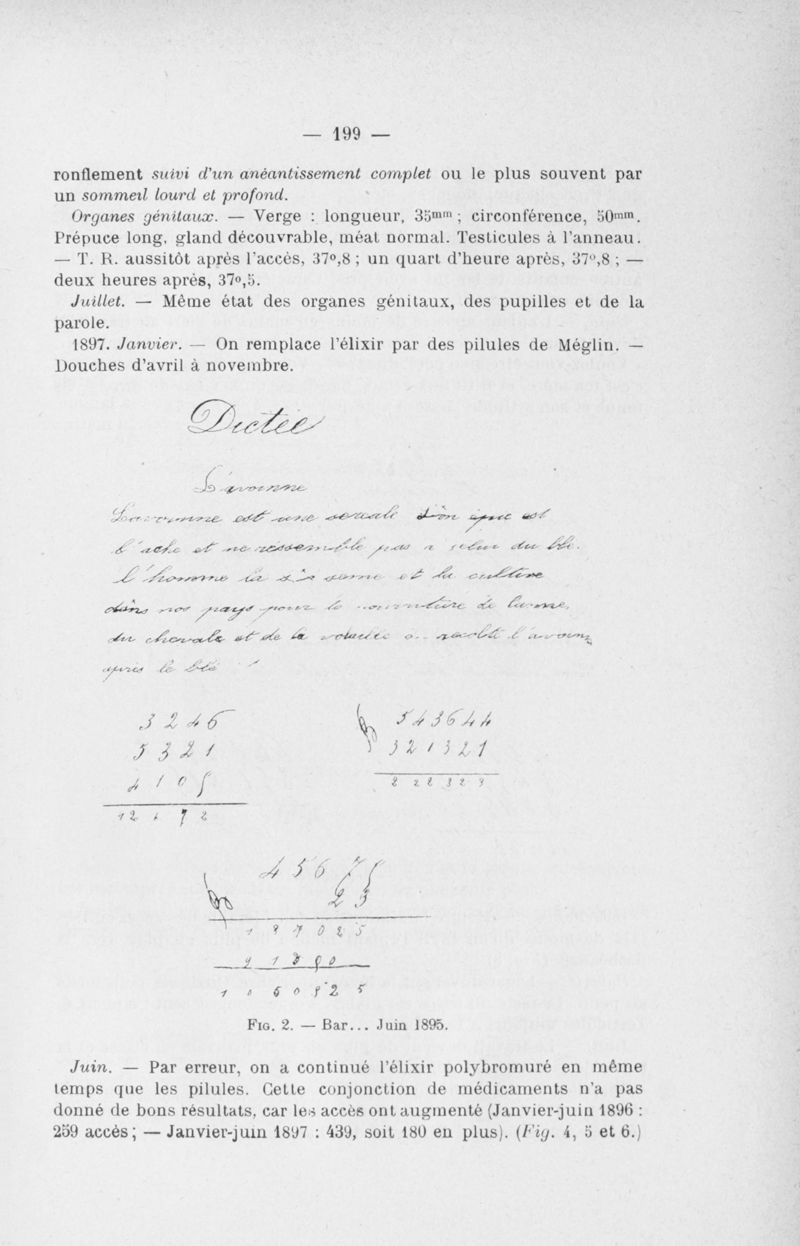 — 199 —
ronflement suivi d'un anéantissement complet ou le plus souvent par
un sommeil lourd et profond.
Organes génitaux. — Verge : longueur, 35mm ; circonférence, 50mm.
Prépuce long, gland découvrable, méat normal. Testicules à l'anneau.
— T. R. aussitôt après l'accès, 37°,8 ; un quart d'heure après, 37°,8 ; —
deux heures après, 37°,5.
Juillet. — Même état des organes génitaux, des pupilles et de la
parole.
1897. Janvier. — On remplace l'élixir par des pilules de Méglin. —
Douches d'avril à novembre.
Dictée
est une
et ne pas a du blé.
L'homme la et la culture
dans nos pays pour la de
du et de la l'
après le blé
3246
5321
4105
543644
321321
222323
45675
23
FIG. 2. — Bar... Juin 1895.
Juin. — Par erreur, on a continué l'élixir polybromuré en même
temps que les pilules. Cette conjonction de médicaments n'a pas
donné de bons résultats, car les accès ont augmenté (Janvier-juin 1896 :
259 accès ; — Janvier-juin 1897 : 439, soit 180 en plus). (Fig. 4, 5 et 6.)